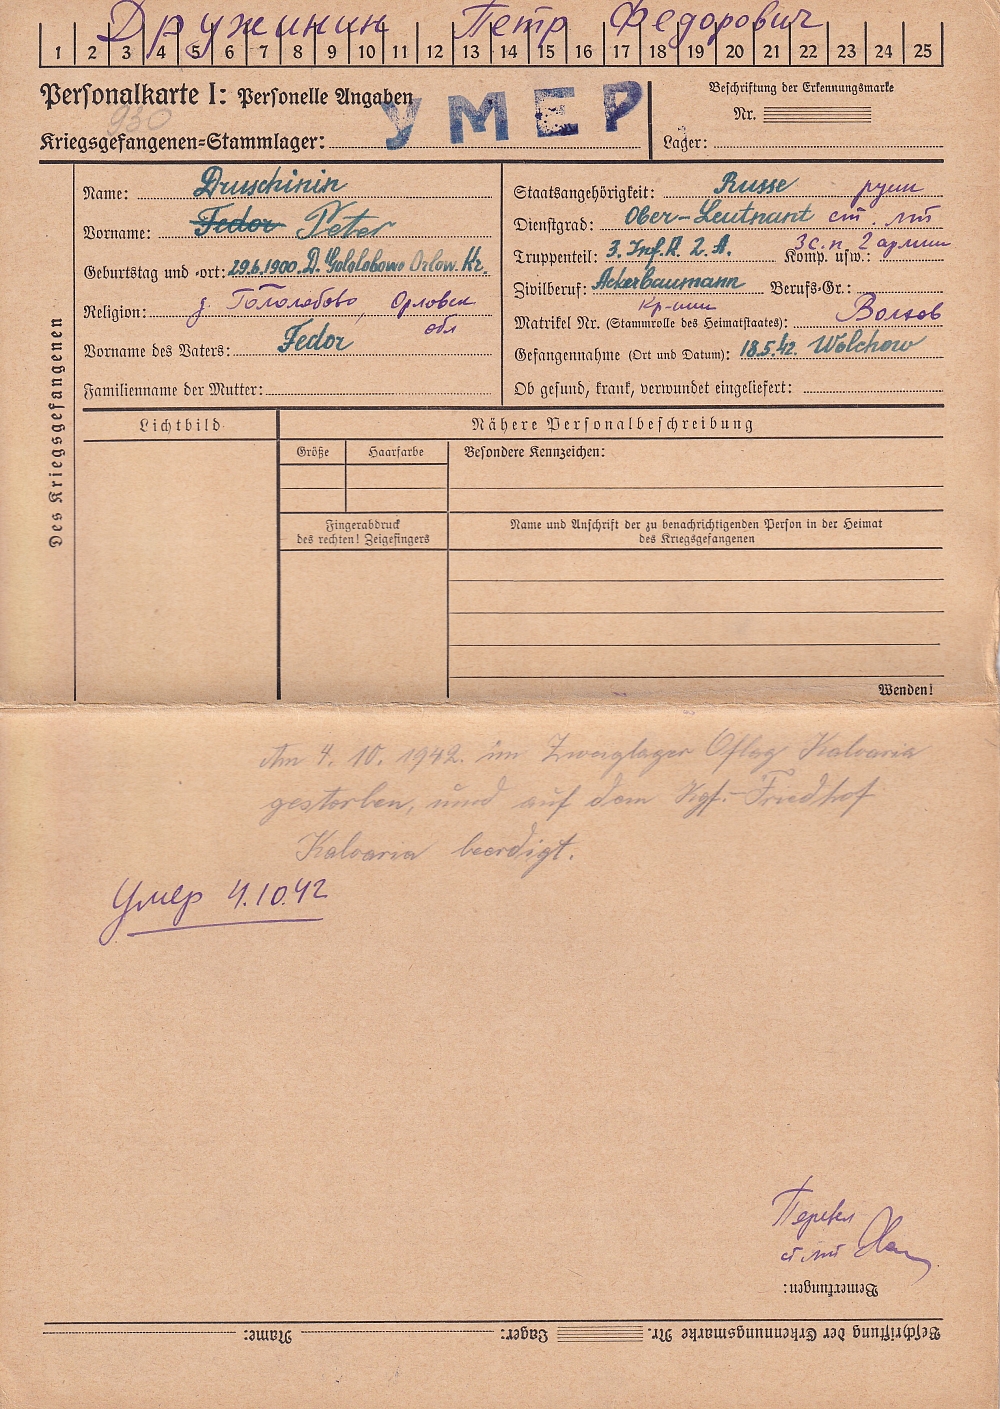 Дружинин Петр Федорович
1 2 3 4 5 6 7 8 9 10 11 12 13 14 15 16 17 18 19 20 21 22 23 24 25
Personalkarte I: Personelle Angaben
930
УМЕР
Kriegsgefangenen-Stammlager:
Beschriftung der Erkennungsmarke
Nr.
Lager:
Des Kriegsgefangenen
Name: Druschinin
Vorname: Fedor Peter
Geburtstag und -ort: 29.6.1900. D. Gololobowo Orlow. Kr.
д. Гололобово, Орловск
обл
Religion:
Vorname des Vaters: Fedor
Familienname der Mutter:
Staatsangehörigkeit: Russe русск
Dienstgrad: Ober-Leutnant ст. лт
Truppenteil: 3. Inf. R. 2. A. Komp. usw.: 3 с.п. 2 армии
Zivilberuf: Ackerbaumann Berufs-Gr.:
кр-нин
Matrikel Nr. (Stammrolle des Heimatstaates): Волхов
Gefangennahme (Ort und Datum): 18.5.42. Wolchow
Ob gesund, krank, verwundet eingeliefert:
Lichtbild
Nähere Personalbeschreibung
Größe Haarfarbe Besondere Kennzeichen:
Fingerabdruck
des rechten! Zeigefingers
Name und Anschrift der zu benachrichtigenden Person in der Heimat
des Kriegsgefangenen
Wenden!
Am 4. 10. 1942. im Zweiglager Oflag Kalvaria
gestorben, und auf dem Kgf.-Friedhof
Kalvaria beerdigt.
Умер 4.10.42
Перевел
ст лт
Bemerkungen:
Beschriftung der Erkennungsmarke Nr. Lager: Name: